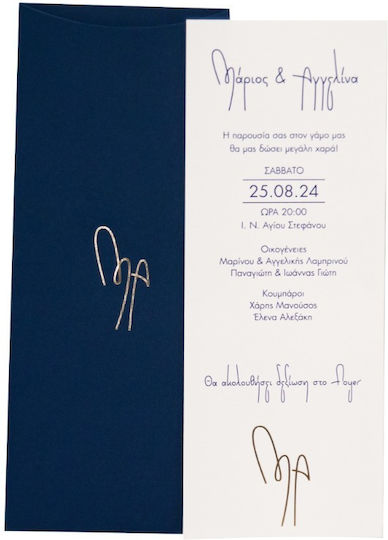 ΜΑ
Μάριος & Αγγελίνα
Η παρουσία σας στον γάμο μας
θα μας δώσει μεγάλη χαρά!
ΣΑΒΒΑΤΟ
25.08.24
ΩΡΑ 20:00
Ι. Ν. Αγίου Στεφάνου
Οικογένειες
Μαρίνου & Αγγελικής Λαμπρινού
Παναγιώτη & Ιωάννας Γιώτη
Κουμπάροι
Χάρης Μανούσος
Έλενα Αλεξάκη
Θα ακολουθήσει δεξίωση στο Φουγερ
ΜΑ